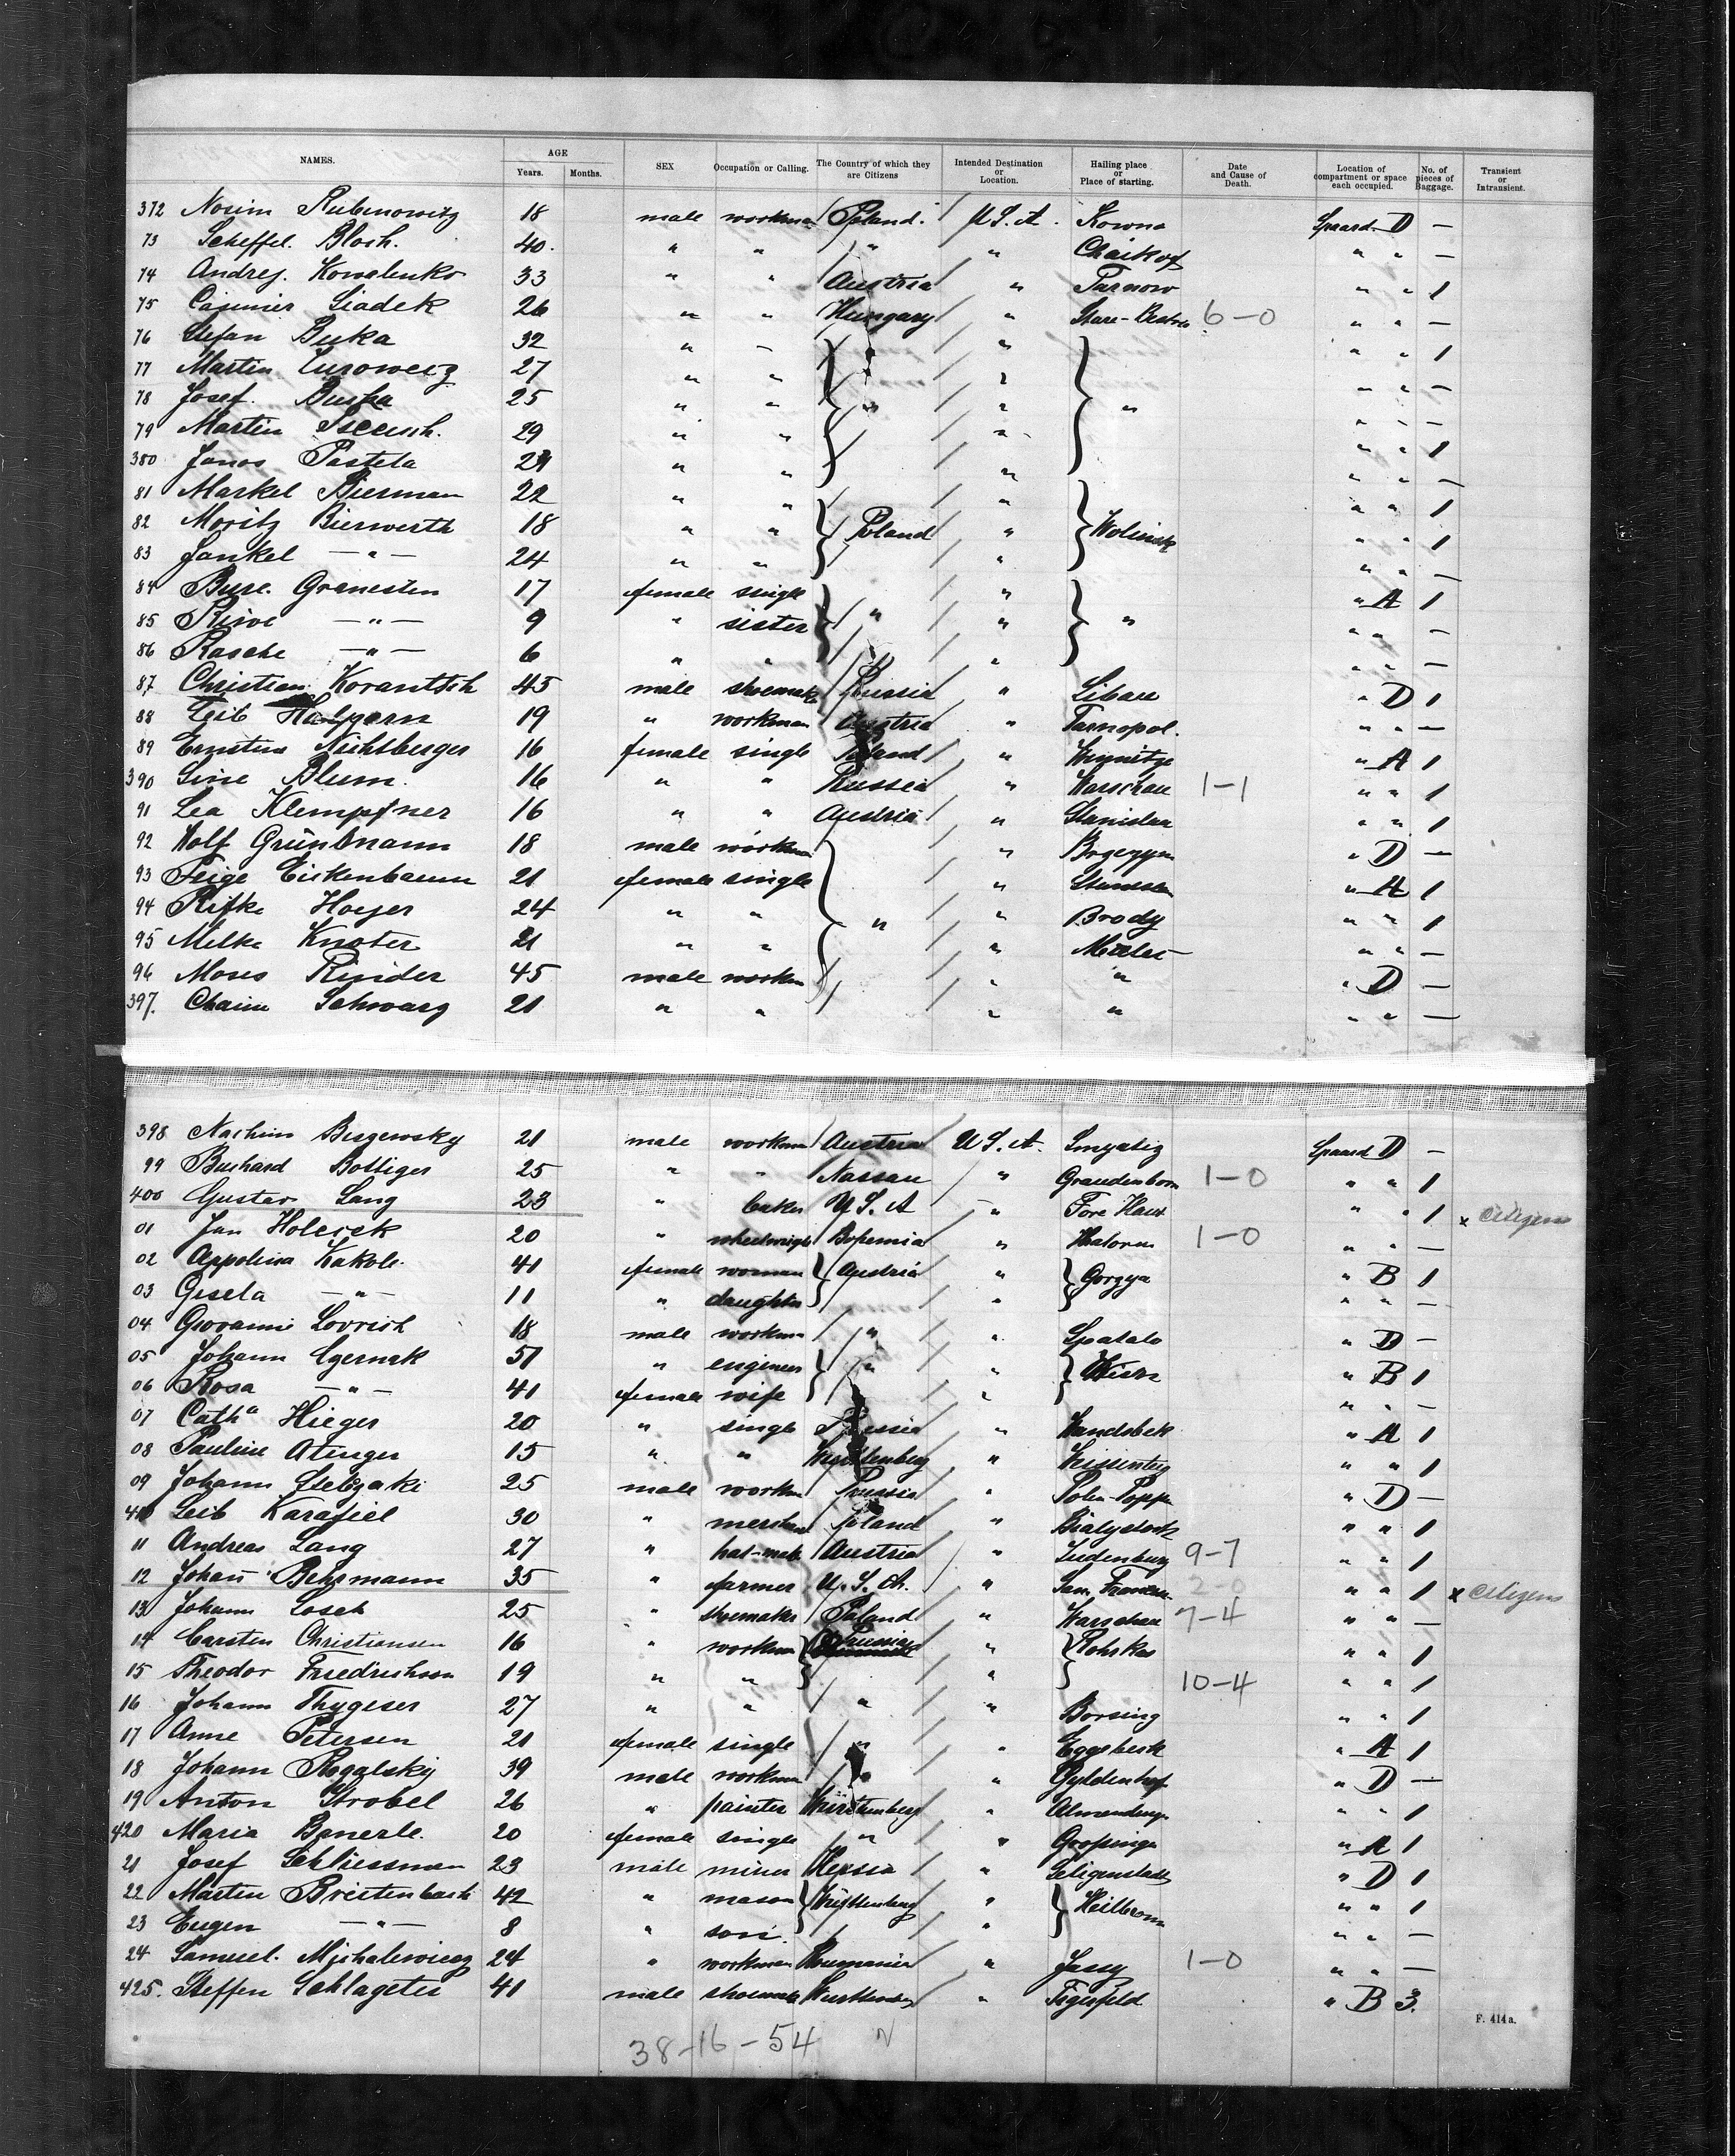 NAMES. AGE Years. Months. SEX Occupation or Calling. The Country of which they are Citizens Intended Destination or Location. Hailing place or Place of starting. Date and Cause of Death. Location of compartment or space each occupied. No. of pieces of Baggage. Transient or Intransient.
372 Nosim Rubinowitz 18 male workman Poland. U.S.A. Kowno Spaard. D —
73 Scheffel. Bloch. 40. " " " " Charkof " " —
74 Andrej. Kowalenko 33 " " Austria " Tarnow " " 1
75 Casimier Siadek 26 " " Hungary " Stare- 6-0 " " —
76 Stefan Buka 32 " — " " " 1
77 Martin 27 " " " " " —
78 Josef. 25 " " " " " " " —
79 Martin 29 " " " " " 1
380 Janos Pasteta " " " " " —
81 Markel Bierman 22 " " " " " 1
82 Moritz Bierwerth 18 " " Poland " " " 1
83 Jankel —"— 24 " " " " " —
84 Granesten 17 female single " " A 1
85 —"— 9 " sister " " " " " —
86 Rasche —"— 6 " " " " " —
87 Christian Korantsch 45 male shoemak Russia " Libau " D 1
88 Leib Halpern 19 " workman Austria " Tarnopol. " " —
89 Ernstine Nichtsberger 16 female single Poland " " A 1
390 Line Blum. 16 " " Russia " Warschau 1-1 " " 1
91 Lea Klempfner 16 " " Austria " Stanislau " " 1
92 Wolf Grünbmann 18 male workman " " D —
93 Feige Eickenbaum 21 female single " " A 1
94 Rifke Hoyer 24 " " " " Brody " " 1
95 Milke Knoter 21 " " " " " —
96 Moses Rinder 45 male workm " " " D —
397. Chaim Schwarz 21 " " " " " " —
398 Nachim Bisgewsky 21 male workman Austria U.S.A. Spaard D —
99 Burhard Bottiger 25 " " Nassau " Graudenborn 1-0 " " 1
400 Gustav Lang 23 " baker U.S.A " " " 1 x citizens
01 Jan Holecek 20 " wheelwright Bohemia " 1-0 " " —
02 Appolina Kakole. 41 female woman Austria " Gorzya " B 1
03 Gisela —"— 11 " daughter " " " —
04 Giovanni Lovrich 18 male workman " " Spalato " D —
05 Johann Czernak 51 " engineer " " Wien " B 1
06 Rosa —"— 41 female wife " " " —
07 Catha Hieger 20 " single " Wandsbek " A 1
08 Pauline Atenger 15 " " Württemberg " " " 1
09 Johann 25 male workm Prussia " " D —
410 Leib Karafiel 30 " merchant Poland " Bialystock " " 1
11 Andreas Lang 27 " hat-mak Austria " Ludenburg 9-7 " " 1
12 Johan Behrmann 35 " farmer U.S.A. " San Francisc 2-0 " " 1 x citizens
13 Johann Losch 25 " shoemaker Poland " Warschau 7-4 " " —
14 Carsten Christiansen 16 " workman Prussia " Rohrkar " " 1
15 Theodor Friedrichson 19 " " " 10-4 " " 1
16 Johann Thygeser 27 " " " " Borsing " " 1
17 Anne Petersen 21 female single " " Eggebeck " A 1
18 Johann Rogalsky 39 male workman " " Gyldenhof " D —
19 Anton Strobel 26 " painter Württenberg " " " 1
420 Maria Banerle. 20 female single " " " A 1
21 Josef Schliessman 23 male miner Hessia " Seligenstadt " D 1
22 Martin Breitenbach 42 " mason Württenberg " Heilbronn " " 1
23 Eugen —"— 8 " son. " " " —
24 Samuel. Michalewicz 24 " workman Roumania " Jassy 1-0 " " —
425. Steffen Schlageter 41 male shoemak " Tigerfeld " B 3.
F. 414a.
38-16-54 N